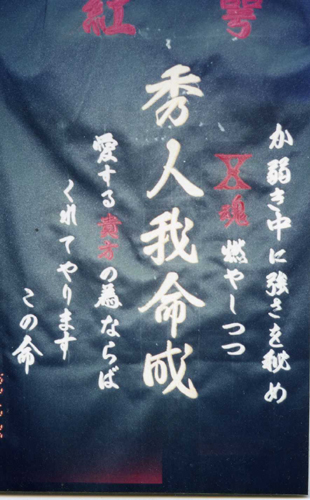 紅 夢
か弱き中に強さを秘め
X魂燃やしつつ
秀人我命成
愛する貴方の為ならば
くれてやります
この命